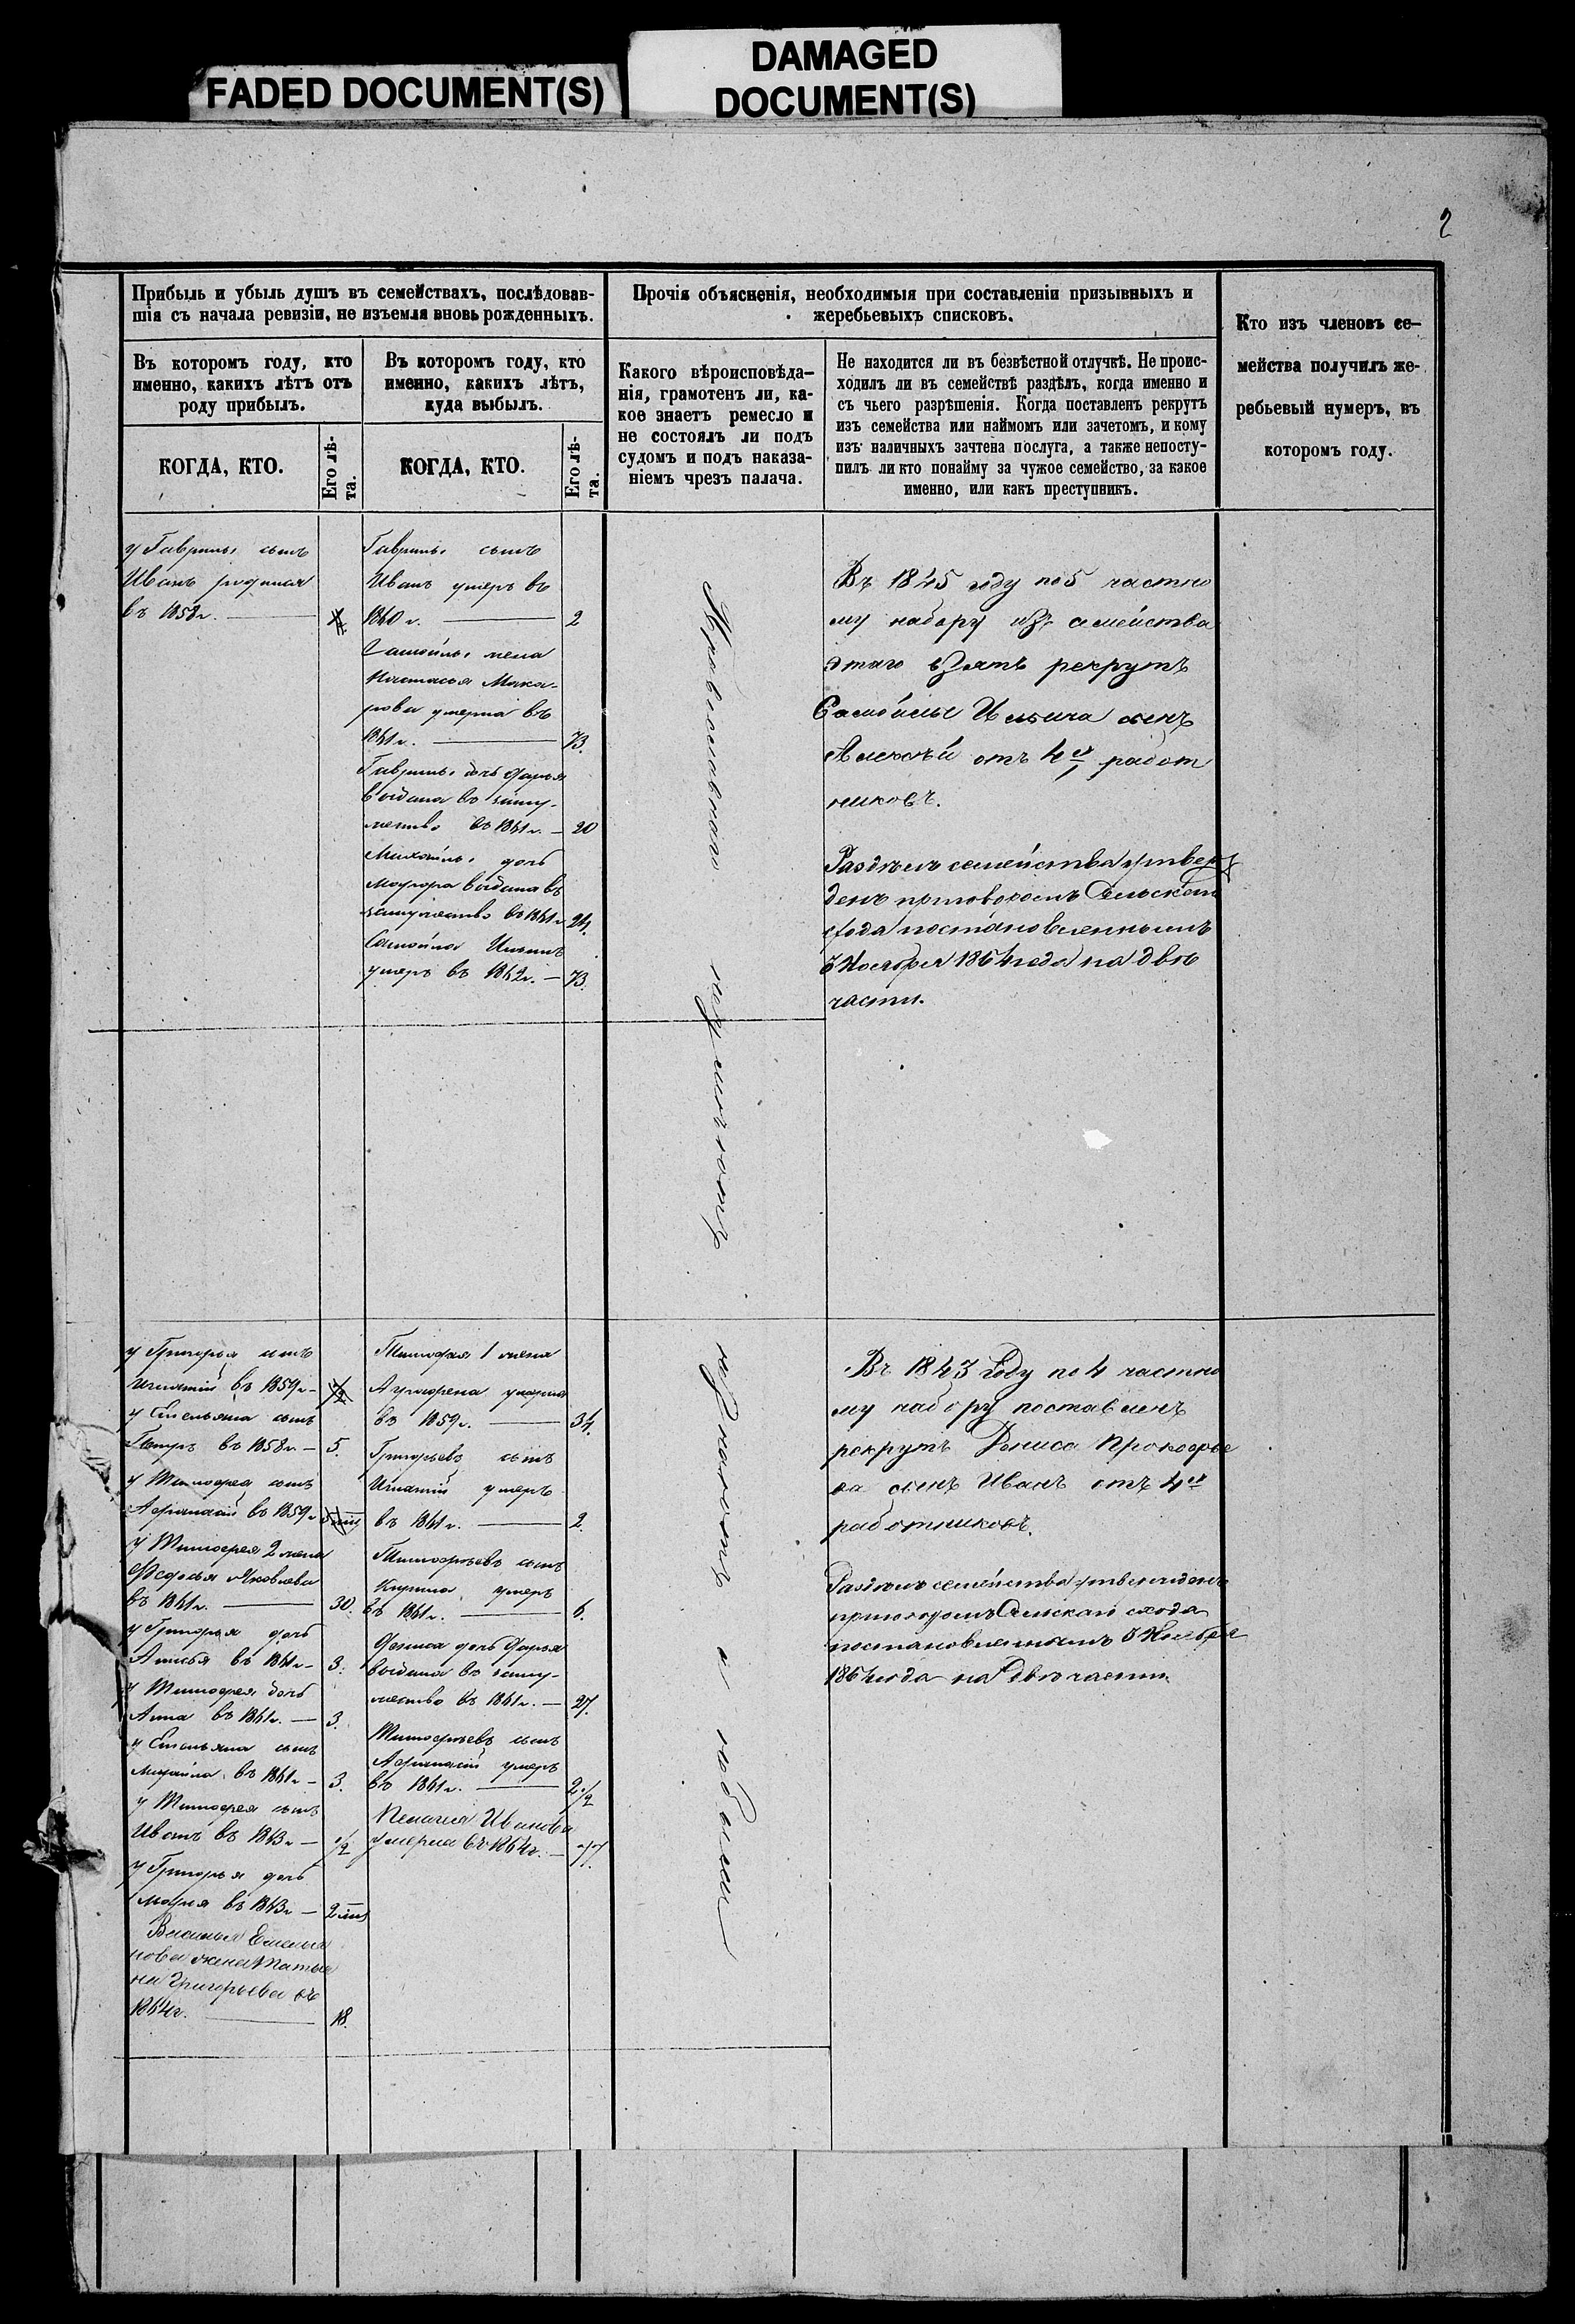 FADED DOCUMENT(S)
DAMAGED
DOCUMENT(S)
2
Прибыль и убыль душъ въ семействахъ, послѣдовав-
шія съ начала ревизіи, не изъемля вновь рожденныхъ.
Въ которомъ году, кто
именно, какихъ лѣтъ отъ
роду прибылъ.
КОГДА, КТО.
Его лѣ-
та.
Въ которомъ году, кто
именно, какихъ лѣтъ,
куда выбылъ.
КОГДА, КТО.
Его лѣ-
та.
Прочія объясненія, необходимыя при составленіи призывныхъ и
жеребьевыхъ списковъ.
Какого вѣроисповѣда-
нія, грамотенъ ли, ка-
кое знаетъ ремесло и
не состоялъ ли подъ
судомъ и подъ наказа-
ніемъ чрезъ палача.
Не находится ли въ безвѣстной отлучкѣ. Не проис-
ходилъ ли въ семействѣ раздѣлъ, когда именно и
съ чьего разрѣшенія. Когда поставленъ рекрутъ
изъ семейства или наймомъ или зачетомъ, и кому
изъ наличныхъ зачтена послуга, а также непосту-
пилъ ли кто понайму за чужое семейство, за какое
именно, или какъ преступникъ.
Кто изъ членовъ се-
мейства получилъ же-
ребьевый нумеръ, въ
которомъ году.
у Гаврилы сынъ
Иванъ родился
въ 1858г.
Гаврилы сынъ
Иванъ умеръ въ
1860г. 2
Самойлы жена
Настасья Мака-
рова умерла въ
1861г. 73.
Гаврилы дочь Дарья
выдана въ заму-
жество въ 1861г. 20
Михайлы дочь
выдана въ
замужество въ 1861г. 24.
Самойла Ильинъ
умеръ въ 1862г. 73.
Православнаго
Въ 1845 году по 5 частно
му набору изъ семейства
этаго взятъ рекрутъ
Самойлы Ильина сынъ
Алексѣй отъ 4хъ работ
никовъ.
Раздѣлъ семейства утверж
денъ приговоромъ Сельскаго
схода постановленнымъ
8 Ноября 1864 года на двѣ
части.
у Григорья сынъ
Игнатій въ 1859г.
у Емельяна сынъ
Петръ въ 1858г. 5.
у Тимофея сынъ
Афанасій въ 1859г.
у Тимофея 2 жена
Федосья Яковлева
въ 1861г. 30.
у Григорья дочь
въ 1861г. 3.
у Тимофея дочь
Анна въ 1861г. 3.
у Емельяна сынъ
Михайла въ 1861г. 3.
у Тимофея сынъ
Иванъ въ 1863г. 1/2
у Григорья дочь
Марья въ 1863г. 2
Василья Емелья
нова жена Татья
на Григорьева въ
1864г. 18.
Тимофея 1 жена
Аграфена умерла
въ 1859г. 34.
Григорьевъ сынъ
Игнатій умеръ
въ 1861г. 2.
Тимофѣевъ сынъ
Кирила умеръ
въ 1861г. 6.
Дениса дочь Дарья
выдана въ заму-
жество въ 1861г. 27.
Тимофѣевъ сынъ
Афанасій умеръ
въ 1861г. 2 1/2
Пелагея Иванова
умерла въ 1864г. 77.
Въ 1843 году по 4 частно
му набору поставленъ
рекрутъ Дениса Прокофье
ва сынъ Иванъ отъ 4хъ
работниковъ.
Раздѣлъ семейства утвержденъ
приговоромъ Сельскаго схода
постановленнымъ 8 Ноября
1864 года на двѣ части.